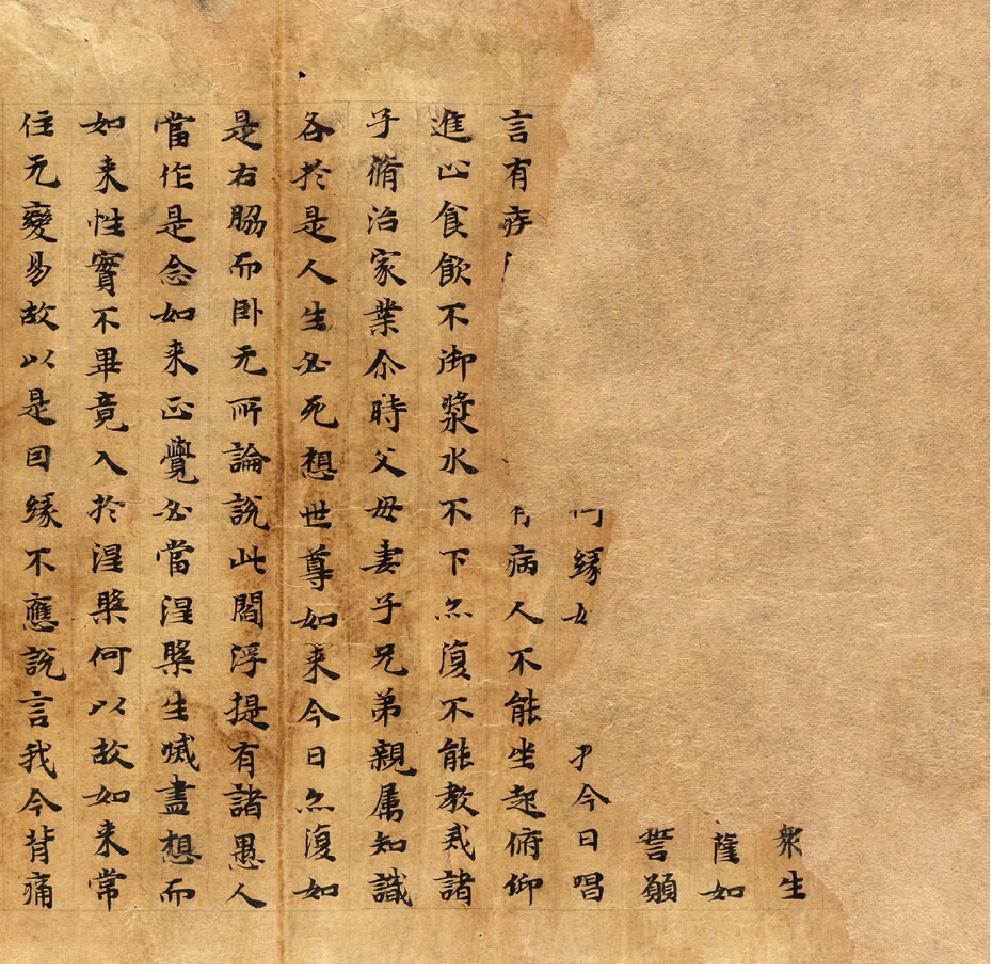 衆生
薩如
誓願
何緣如 今日唱
言有病 有病人不能坐起俯仰
進止食飲不御漿水不下亦復不能教戒諸
子脩治家業尒時父母妻子兄弟親属知識
各於是人生必死想世尊如来今日亦復如
是右脇而卧无所論說此閻浮提有諸愚人
當作是念如来正覺必當涅槃生滅盡想而
如来性實不畢竟入於涅槃何以故如来常
住无變易故以是因緣不應說言我今背痛